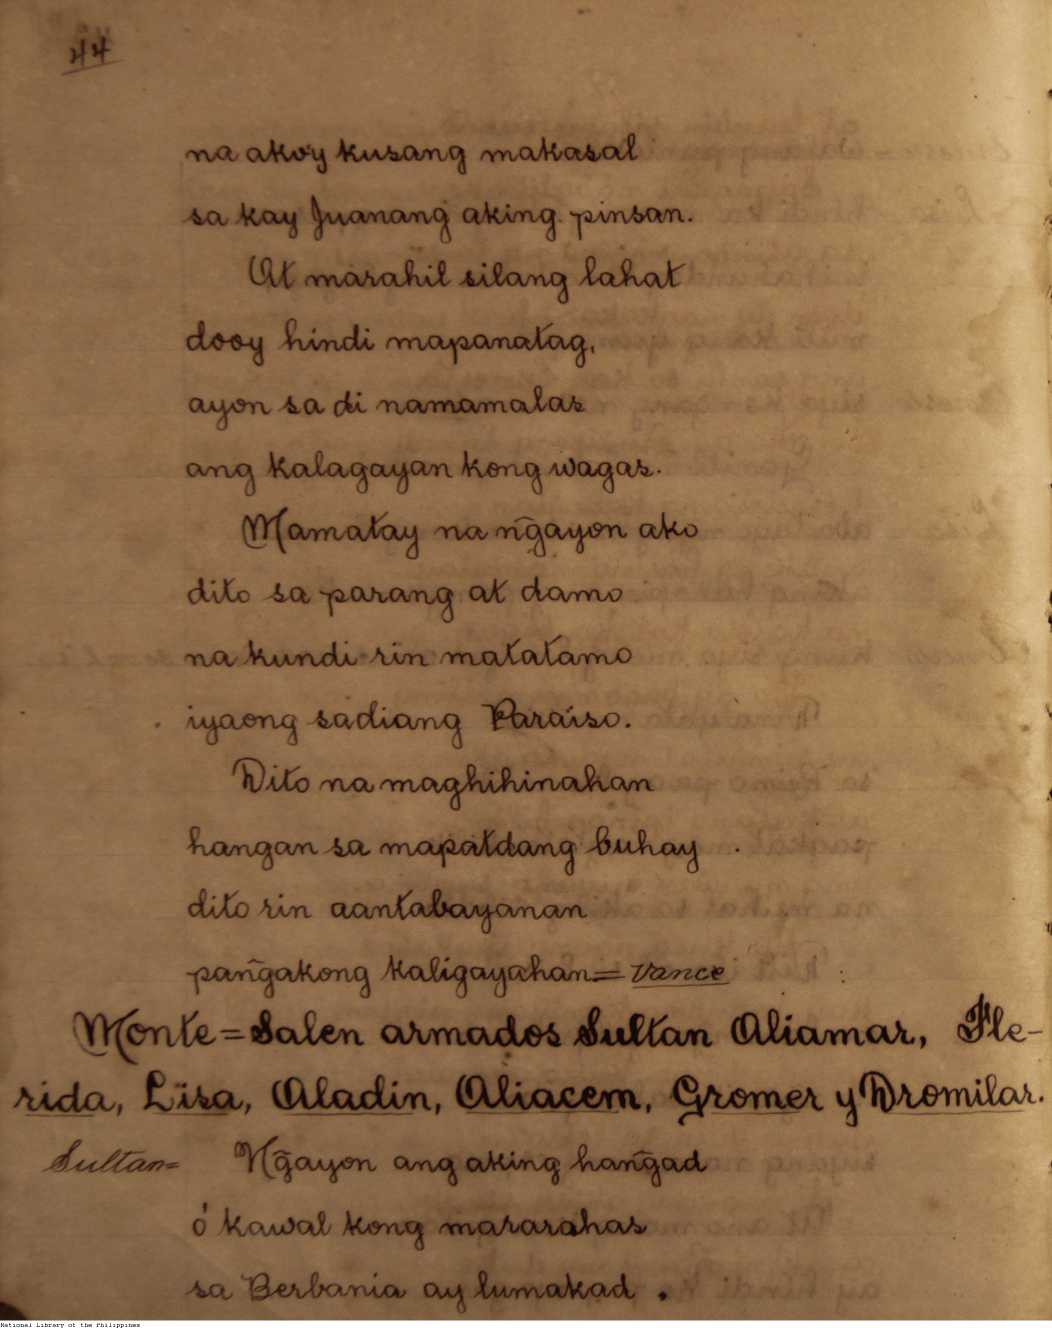 44
na akoy kusang makasal
sa kay Juanang aking pinsan.
At marahil silang lahat
dooy hindi mapanatag,
ayon sa di namamalas
ang kalagayan kong wagas.
Mamatay na ñgayon ako
dito sa parang at damo
na kundi rin matatamo
iyaong sadiang Paraiso.
Dito na maghihinahan
hangan sa mapatdang buhay
dito rin aantabayanan
pañgakong kaligayahan = Vance
Monte = Salen armados Sultan Aliamar, Fle-
rida, Lisa, Aladin, Aliacem, Gromer y Dromilar.
Sultan = Ng̃ayon ang aking hang̃ad
ó kawal kong mararahas
sa Berbania ay lumakad.
National Library of the Philippines